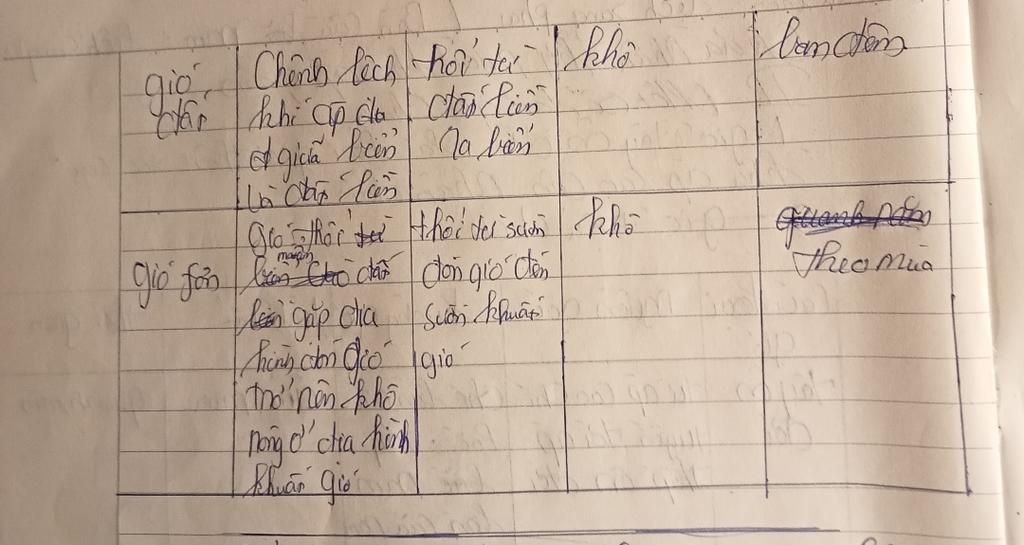 gió đất
Chênh lệch khí áp địa giữa biển và đất liền
thổi từ đất liền ra biển
khô
ban đêm
gió fơn
gió thổi mang đất gặp địa hình chắn gió trở nên khô nóng ở địa hình khuất gió
thổi từ sườn đón gió đến sườn khuất gió
khô
quanh năm
theo mùa